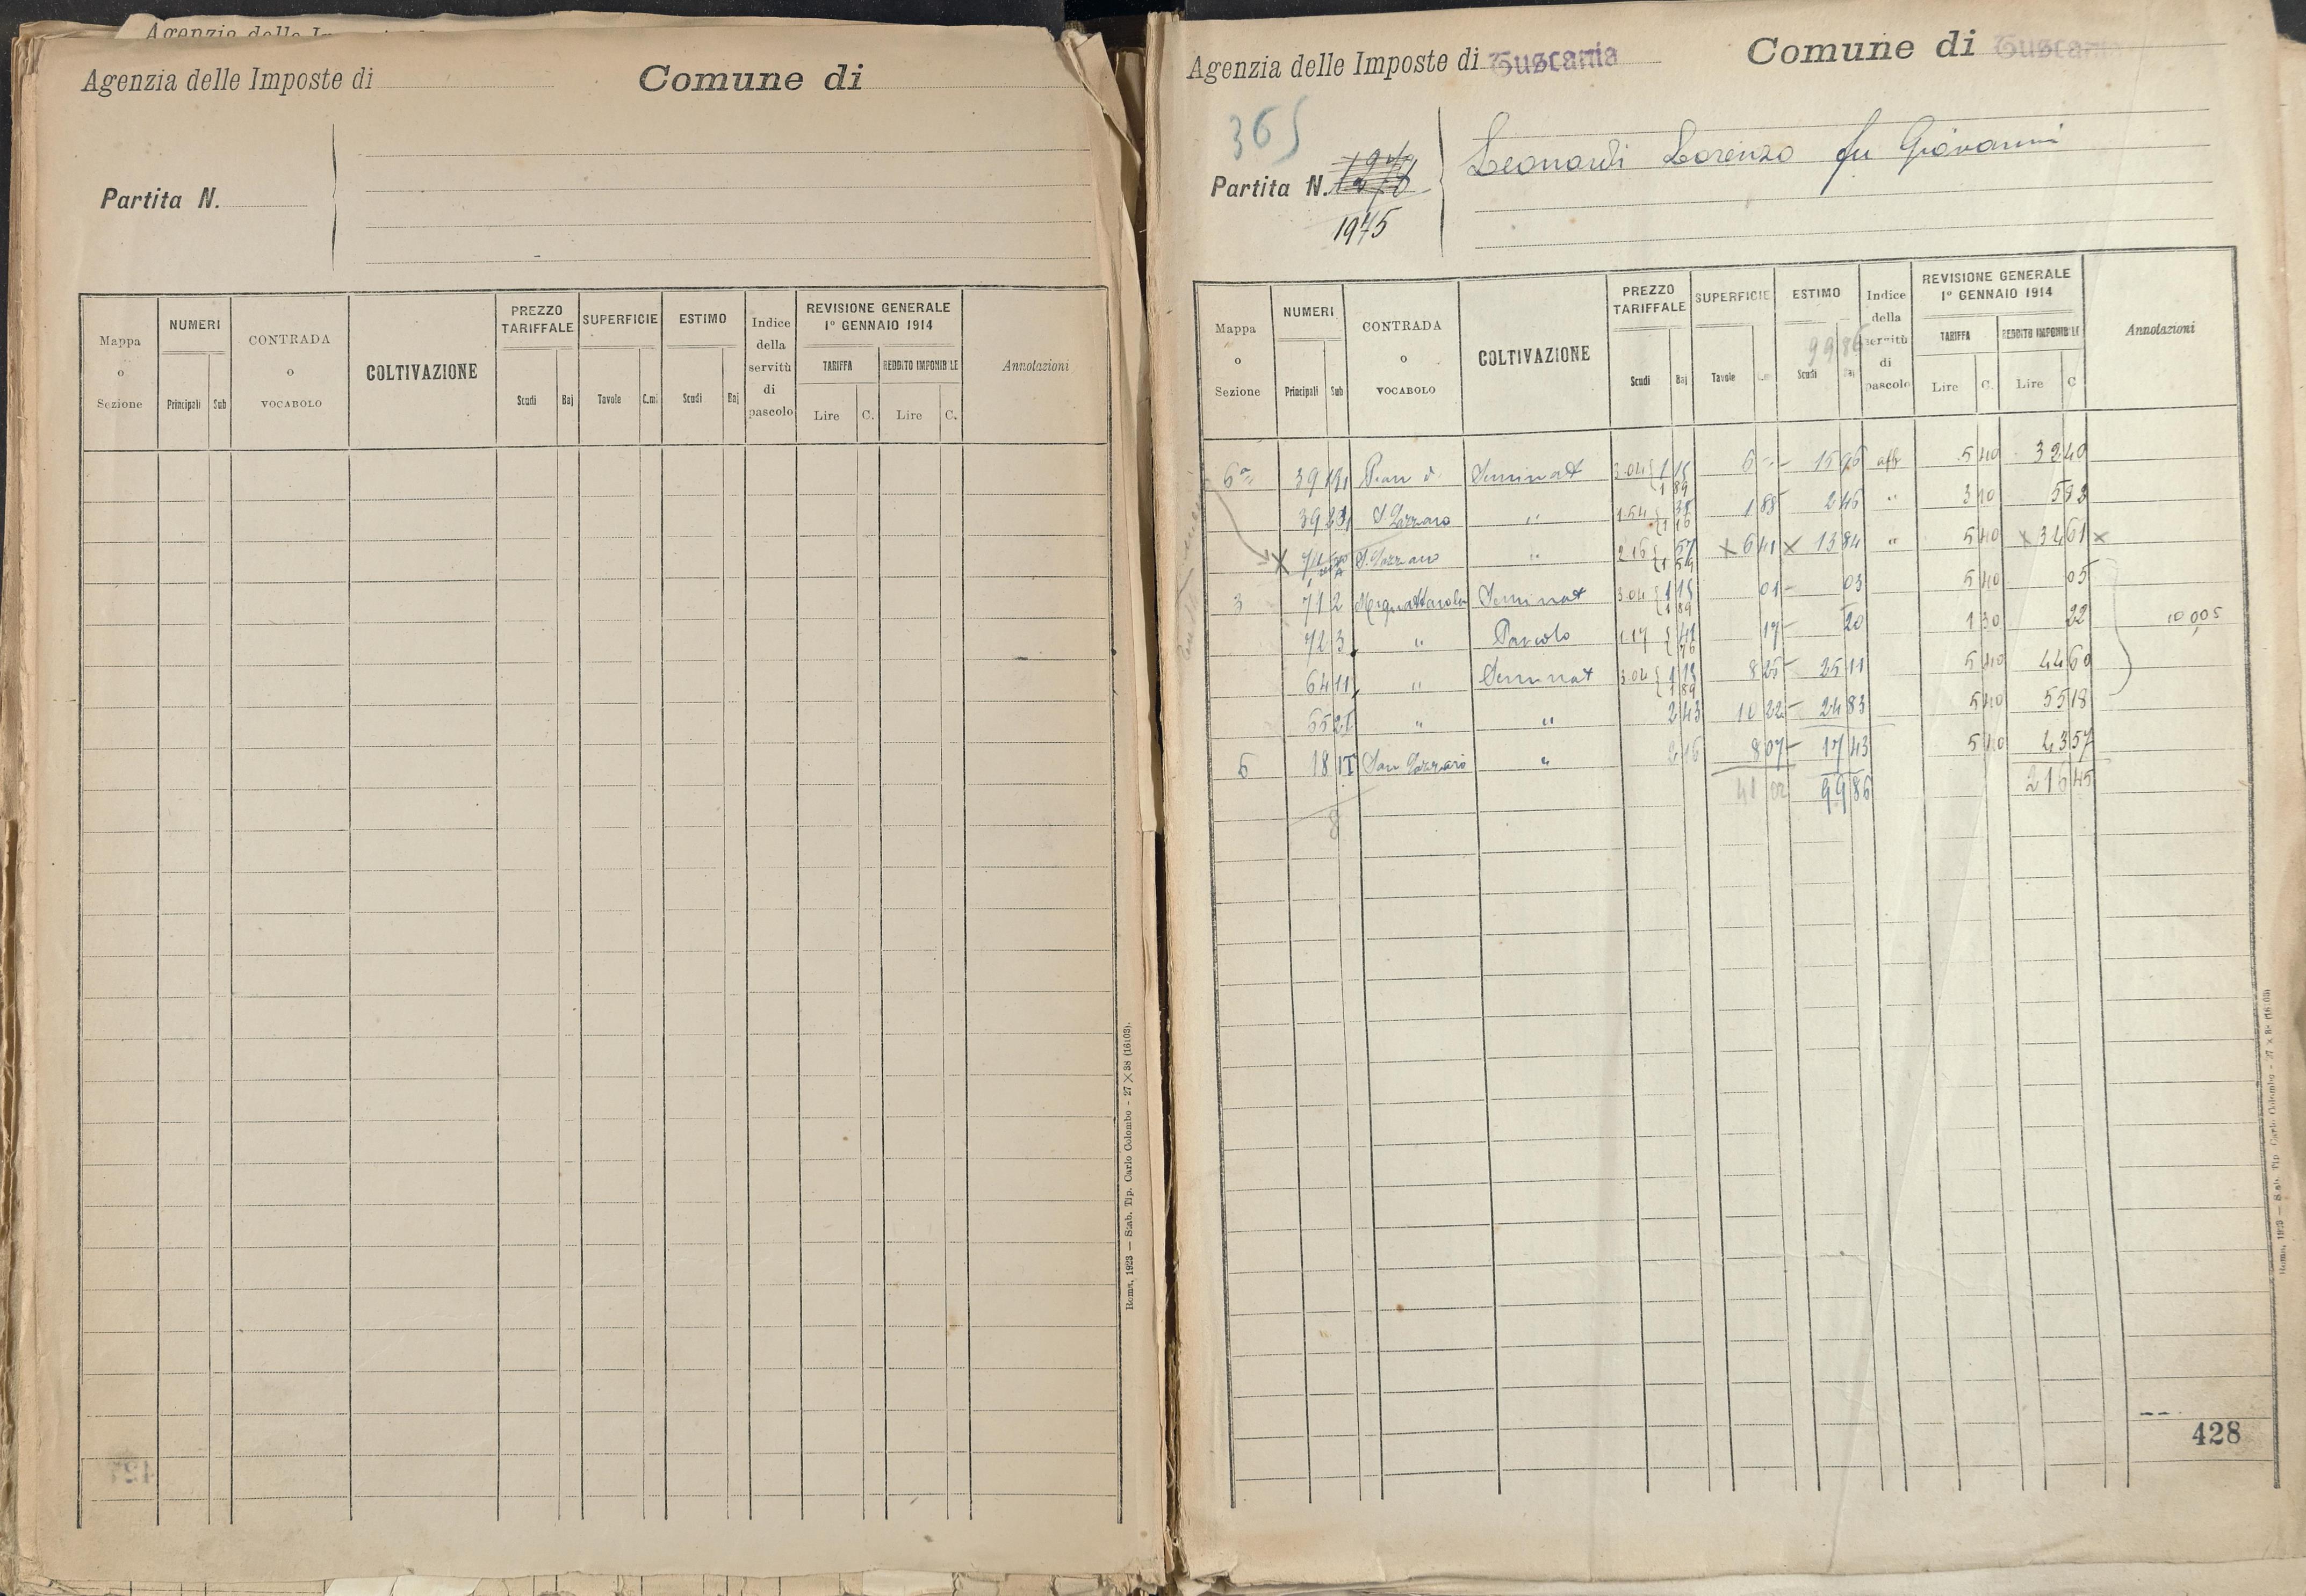 Agenzia delle Imposte di
Comune di
Partita N.
Mappa o Sezione
NUMERI
Principali
Sub
CONTRADA o VOCABOLO
COLTIVAZIONE
PREZZO TARIFFALE
Scudi
Baj
SUPERFICIE
Tavole
C.mi
ESTIMO
Scudi
Baj
Indice della servitù di pascolo
REVISIONE GENERALE
1° GENNAIO 1914
TARIFFA
REDDITO IMPONIBILE
Lire
C.
Lire
C.
Annotazioni
Roma, 1923 — Stab. Tip. Carlo Colombo - 27 X 38 (16103).
Agenzia delle Imposte di Tuscania
Comune di Tuscania
365
Partita N.
1975
Leonardi Lorenzo fu Giovanni
Mappa o Sezione
NUMERI
Principali
Sub
CONTRADA o VOCABOLO
COLTIVAZIONE
PREZZO TARIFFALE
Scudi
Baj
SUPERFICIE
Tavole
ESTIMO
99 86
Scudi
Baj
Indice della servitù di pascolo
REVISIONE GENERALE
1° GENNAIO 1914
TARIFFA
REDDITO IMPONIBILE
Lire
C.
Lire
C
Annotazioni
6a Pian di Seminat 3.04 1 15 1 89 6 -- 5 40 32 40
S. Lazzaro " 1.54 1 88 2 45 " 3 10 5 83
X S. Lazzaro " 2 16 X 6 41 X 13 84 " 5 40 X 34 61 X
3 71 2 Seminat 3.04 1 15 1 89 01 03 5 40 05
72 3 " Pascolo 1.17 41 76 17 20 1 30 22 10 005
64 11 " Seminat 3.04 1 15 1 89 8 25 25 11 5 40 44 60
" " 2 43 10 22 24 83 5 40 55 18
5 18 San Lazzaro " 2 16 8 07 17 43 5 40 43 57
41 02 99 86 216 45
8
428